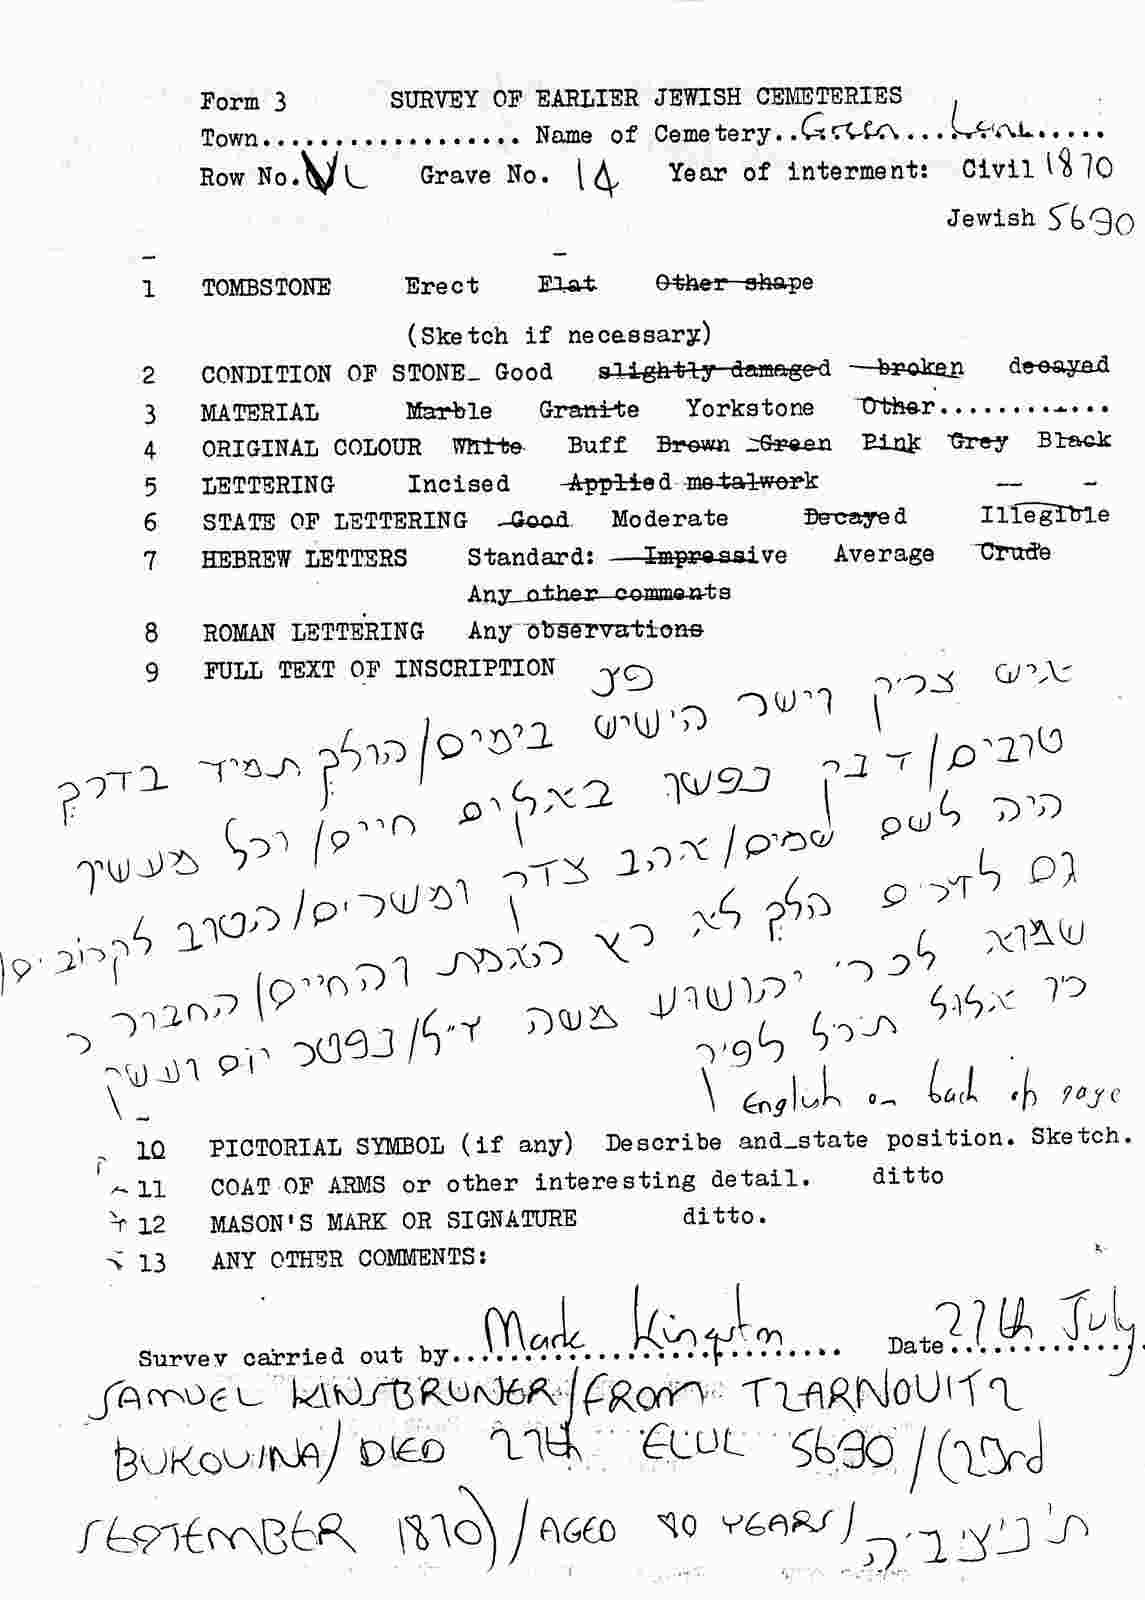 Form 3 SURVEY OF EARLIER JEWISH CEMETERIES
Town.................. Name of Cemetery..Green...Lane.....
Row No. VL Grave No. 14 Year of interment: Civil 1870
Jewish 5630
1 TOMBSTONE Erect Flat Other shape
(Sketch if necessary)
2 CONDITION OF STONE_ Good slightly damaged broken decayed
3 MATERIAL Marble Granite Yorkstone Other............
4 ORIGINAL COLOUR White Buff Brown Green Pink Grey Black
5 LETTERING Incised Applied metalwork
6 STATE OF LETTERING Good Moderate Decayed Illegible
7 HEBREW LETTERS Standard: Impressive Average Crude
Any other comments
8 ROMAN LETTERING Any observations
9 FULL TEXT OF INSCRIPTION
פנ
איש צדיק וישר הישיש בימים/הולך תמיד בדרך
טובים/דבק נפשו באלים חיים/וכל מעשיו
היה לשם שמים/אהב צדק ומשרים/הטוב לקרובים/
גם הלך לא האמת והחיים/החבור ר
שמוא לכר' יהושוע משה ז״ל/נפטר יום ועשק
כו אלול תרל לפיק
English on back of page
10 PICTORIAL SYMBOL (if any) Describe and_state position. Sketch.
11 COAT OF ARMS or other interesting detail. ditto
12 MASON'S MARK OR SIGNATURE ditto.
13 ANY OTHER COMMENTS:
Survey carried out by.. Mark Kingston .......... Date 27th July
SAMUEL KINSBRUNER/FROM TZARNOVITZ
BUKOVINA/DIED 27th ELUL 5630/(23rd
SEPTEMBER 1870)/AGED 80 YEARS/ ת'נ'צ'ב'ה